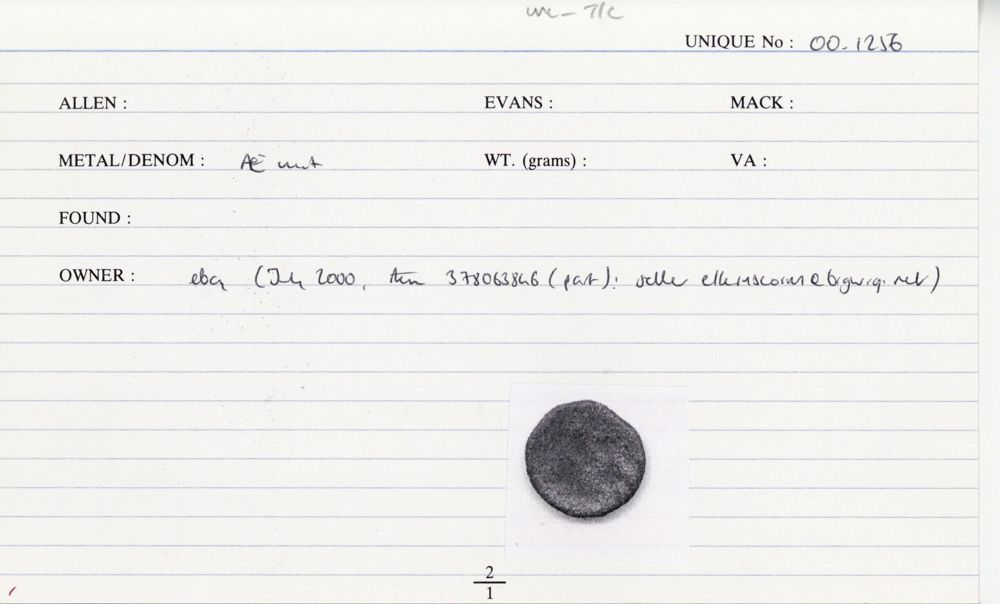 unc - T/C
UNIQUE No : 00.1256
ALLEN : EVANS : MACK :
METAL/DENOM : Æ unit WT. (grams) : VA :
FOUND :
OWNER : ebay (July 2000, item 378063846 (part): seller
2
1